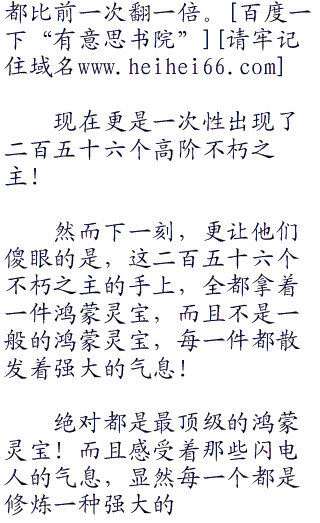 都比前一次翻一倍。[百度一
下“有意思书院”][请牢记
住域名www.heihei66.com]
现在更是一次性出现了
二百五十六个高阶不朽之
主！
然而下一刻，更让他们
傻眼的是，这二百五十六个
不朽之主的手上，全都拿着
一件鸿蒙灵宝，而且不是一
般的鸿蒙灵宝，每一件都散
发着强大的气息！
绝对都是最顶级的鸿蒙
灵宝！而且感受着那些闪电
人的气息，显然每一个都是
修炼一种强大的